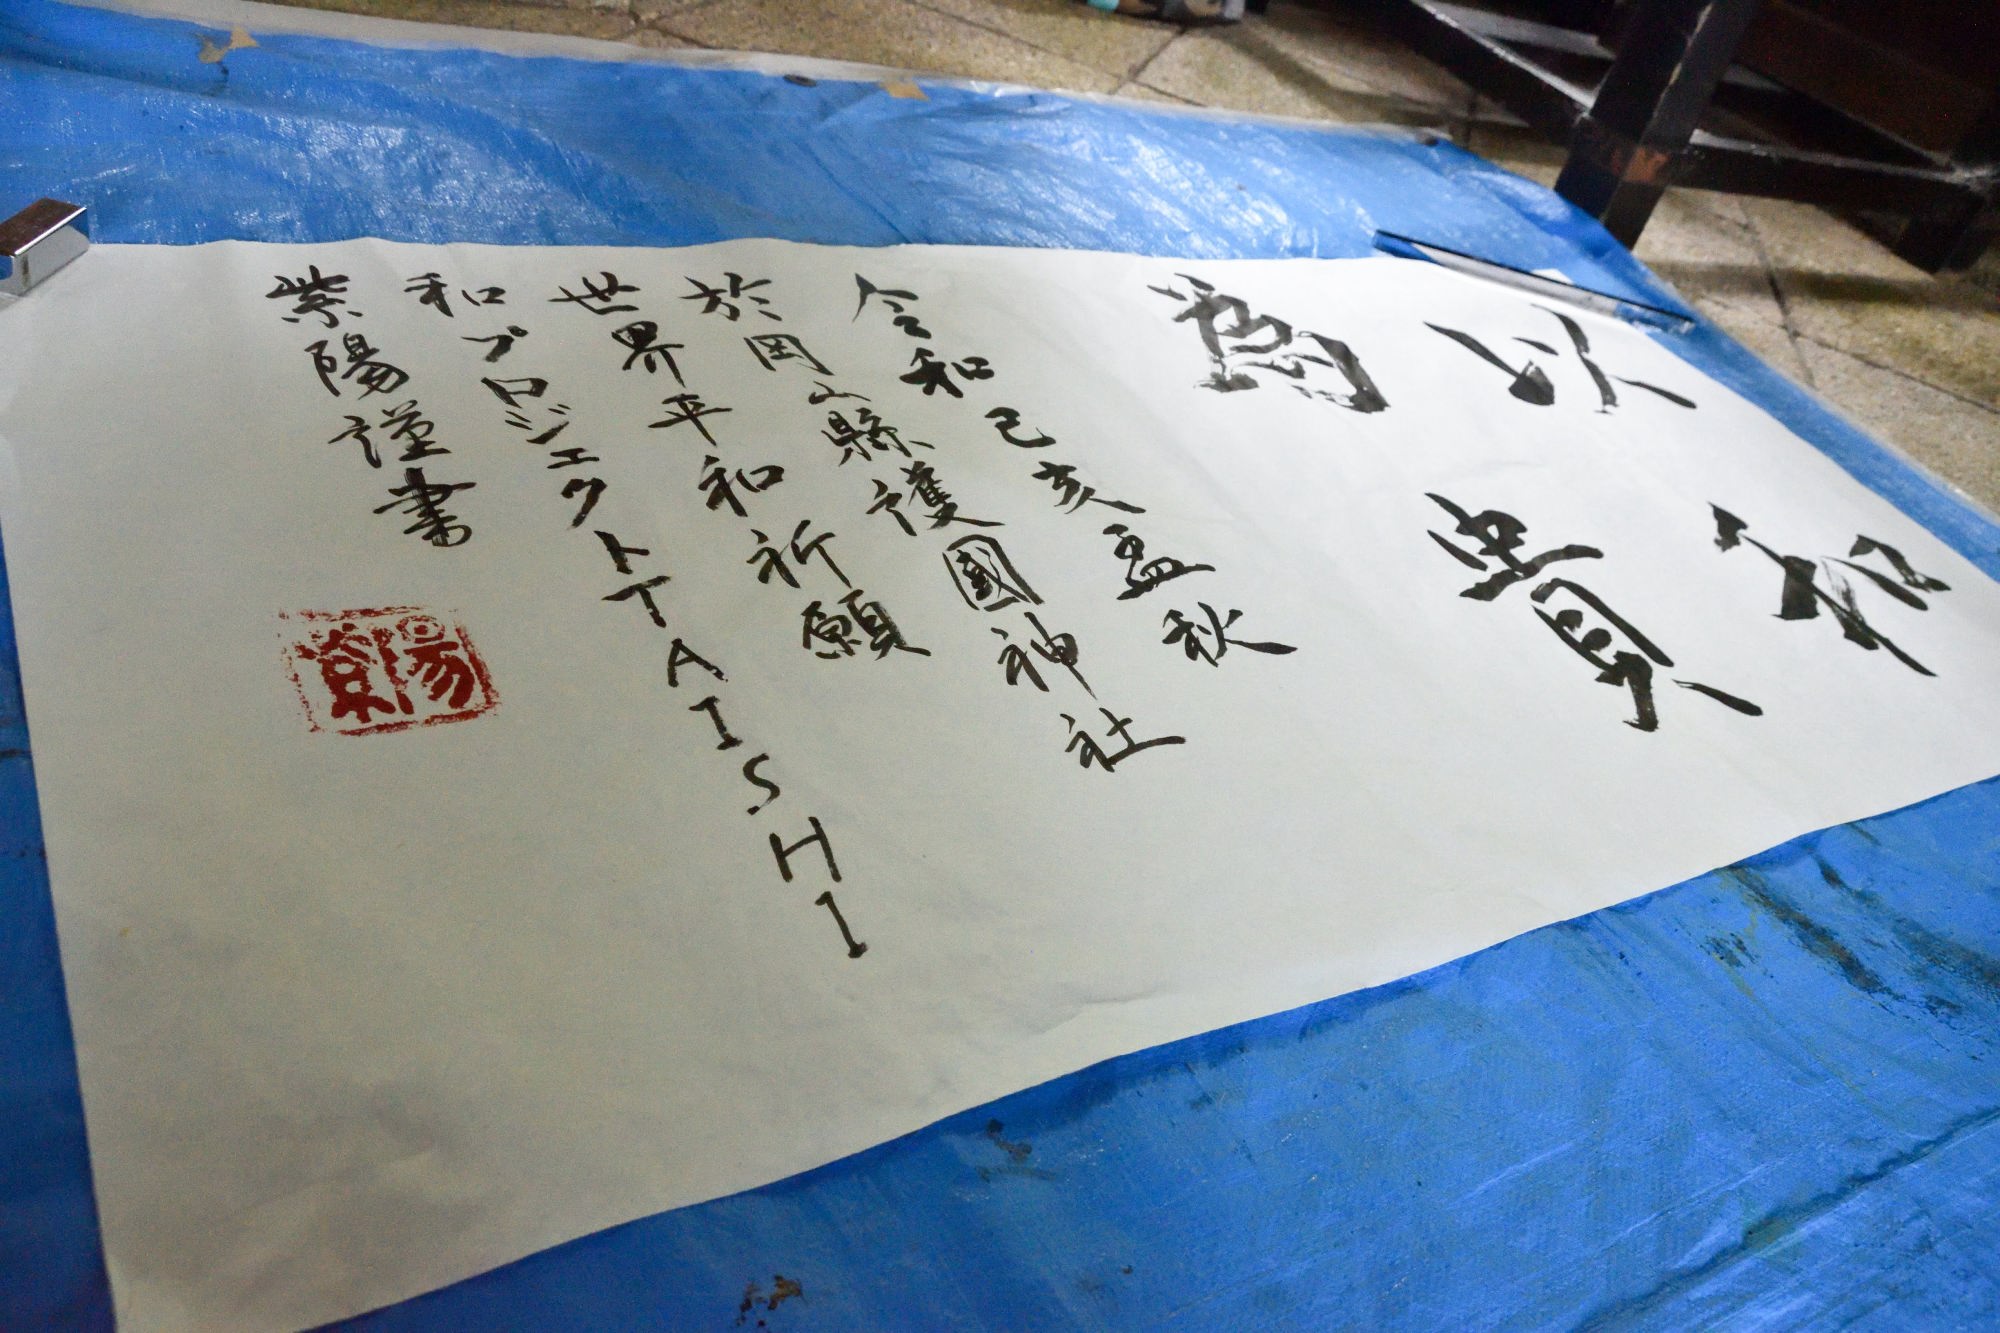 以和
爲貴
令和己亥孟秋
於岡山縣護國神社
世界平和祈願
和プロジェクトTAISHI
紫陽謹書
紫陽